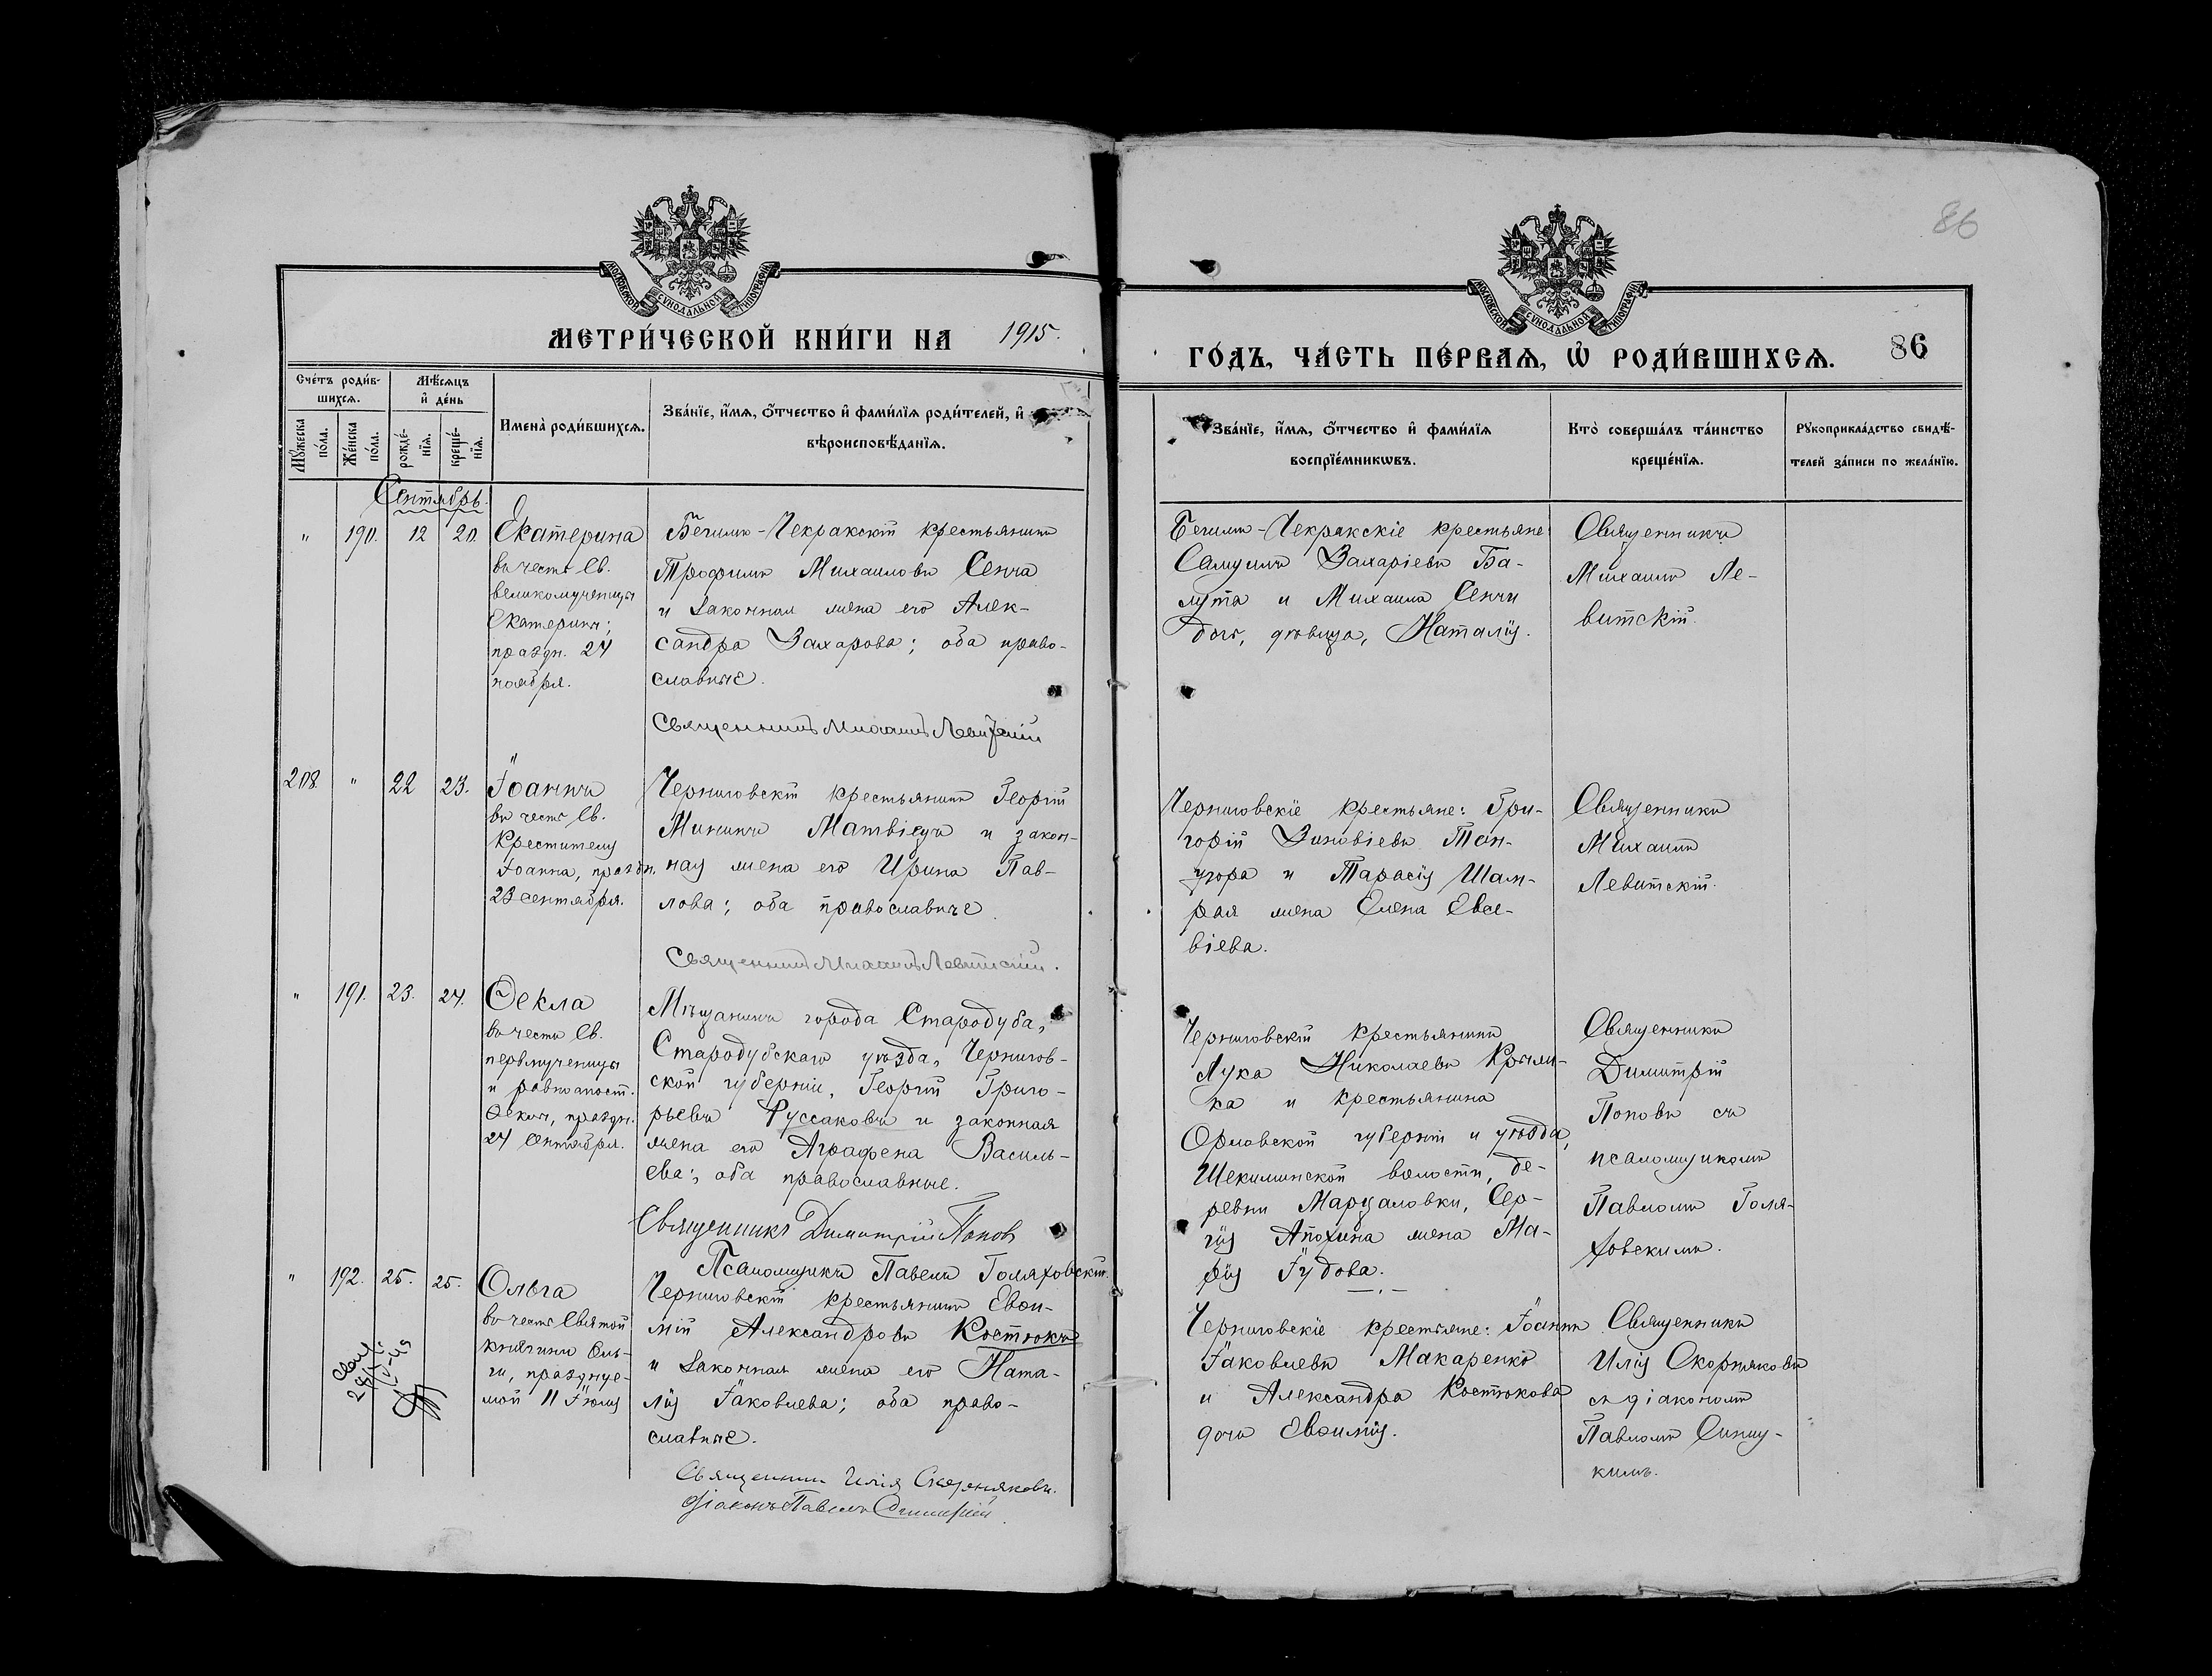 86
МОСКОВСКОЙ СУНОДАЛЬНОЙ ТИПОГРАФІИ
МОСКОВСКОЙ СУНОДАЛЬНОЙ ТИПОГРАФІИ
МЕТРИ́ЧЕСКОЙ КНИ́ГИ НА 1915.
ГО́ДЪ, ЧА́СТЬ ПЕ́РВАѦ, Ѡ҆ РОДИ́ВШИХСѦ. 86
Сче́тъ роди́в-
шихсѧ.
Мꙋ́жеска
по́ла.
Же́нска
по́ла.
Мѣ́сѧцъ
и҆ де́нь
рожде́-
нїѧ.
креще́-
нїѧ.
Имена̀ роди́вшихсѧ.
Зва́нїе, и҆́мѧ, о҆́тчество и҆ фами́лїѧ роди́телей, и҆
вѣроисповѣ́данїѧ.
Зва́нїе, и҆́мѧ, о҆́тчество и҆ фами́лїѧ
воспрїе́мникѡвъ.
Кто̀ соверша́лъ та́инство
креще́нїѧ.
Рꙋкоприкла́дство свидѣ́-
телей за́писи по жела́нїю.
Сентябрь.
" 190. 12 20.
Екатерина
въ честь Св.
великомученицы
Екатерины;
праздн. 24
ноября.
Бегимъ-Чекракскій крестьянинъ
Трофимъ Михаиловъ Сенча
и законная жена его Алек-
сандра Захарова; оба право-
славные.
Священникъ Михаилъ Левитскій
Бегимъ-Чекракскіе крестьяне:
Самуилъ Захаріевъ Ба-
лута и Михаила Сенчи
дочь, дѣвица, Наталія.
Священникъ
Михаилъ Ле-
витскій.
208. " 22 23.
Іоаннъ
въ честь Св.
Крестителя
Іоанна, праздн.
23 сентября.
Черниговскій крестьянинъ Георгій
Мининъ Матвіецъ и закон-
ная жена его Ирина Пав-
лова; оба православные
Священникъ Михаилъ Левитскій.
Черниговскіе крестьяне: Гри-
горій Зиновіевъ Тон-
и Тарасія Шам-
рая жена Елена Евсе-
віева.
Священникъ
Михаилъ
Левитскій.
" 191. 23. 24.
Ѳекла
въ честь Св.
первмученицы
и равноапост.
Ѳеклы, праздн.
24 Сентября.
Мѣщанинъ города Стародуба,
Стародубскаго уѣзда, Чернигов-
ской губерніи, Георгій Григо-
рьевъ Руссаковъ и законная
жена его Аграфена Василь-
ева; оба православные.
Священникъ Димитрій Поповъ
Псаломщикъ Павелъ Голяховскій.
Черниговскій крестьянинъ
Лука Николаевъ Крыли-
ка и крестьянина
Орловской губерніи и уѣзда,
волости, де-
ревни Марцаловки, Сер-
гія Апохина жена Ма-
рія Гудова.
Священникъ
Димитрій
Поповъ съ
псаломщикомъ
Павломъ Голя-
ховскимъ.
" 192. 25. 25.
Ольга
въ честь Святой
княгини Оль-
ги, празднуе-
мой 11 Іюля
Черниговскій крестьянинъ Евѳи-
мій Александровъ Костюкъ
и законная жена его Ната-
лія Іаковлева; оба право-
славные.
Священникъ Илія Скорняковъ.
Діаконъ Павелъ
Черниговскіе крестьяне: Іоаннъ
Іаковлевъ Макаренко
и Александра Костюкова
дочь Евѳимія.
Священникъ
Илія Скорняковъ
съ діакономъ
Павломъ Синиц-
кимъ.